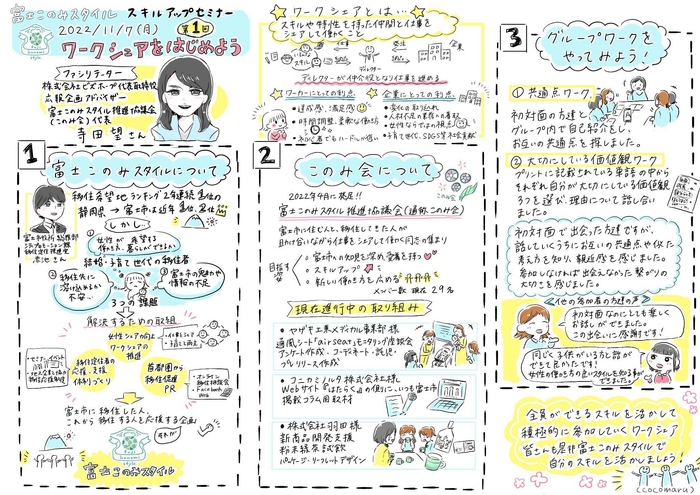 富士このみスタイル スキルアップセミナー
2022/11/7(月) 第1回
ワークシェアをはじめよう
konomi style
ファシリテーター
株式会社ビズホープ代表取締役
広報企画アドバイザー
富士このみスタイル推進協議会
(このみ会)代表
寺田 望さん
ワークシェアとは…
スキルや特性を持った仲間と仕事を
シェアして働くこと
発注
企業
スキル
ディレクター
ディレクターが仲介役となり仕事を進める
ワーカーにとっての利点
・達成感、満足感
・時間調整、柔軟な働き方
・初心者でもハードルが低い
企業にとっての利点
・変化の取り込み
・人材不足の業務への着手
・女性ならではの視点
・子育て世代、SDGs等社会貢献
1 富士このみスタイルについて
移住希望地ランキング2年連続1位の
静岡県 → 富士市は近年
しかし
①女性が希望する
働き方、暮らしができない
結婚・子育て世代の移住者
②移住先に
溶け込めるか
不安…
③富士市の魅力や
情報の不足
3つの課題
解決するための取組
女性シェアの向上
ワークシェアの
推進
・仕事シェア
・子育てと両立
移住定住者の
応援・支援
体制づくり
首都圏から
移住促進
PR
・オンライン
移住相談会
・Facebook
・Web
富士市に移住した人、
これから移住する人を応援する企画
それが
konomi style
富士このみスタイル
2 このみ会について
2022年4月に発足!!
富士このみスタイル推進協議会(通称、このみ会)
富士市に住む人、移住してきた人が
助け合いながら仕事をシェアして働く同志の集まり
このみ会
目指す
○富士市の知見を深め愛着を持つ
○スキルアップ
○新しい働き方を広める
メンバー数 現在29名
現在進行中の取り組み
・ヤザキ工業メディカル事業部様
通風シート「airseat」モニタリング座談会
アンケート作成・コーディネート・託児・
プレリリース作成
・コニカミノルタ株式会社様
Webサイト『はたらく』の便りに、いつも富士市
掲載コラム用取材
・株式会社羽田様
新商品開発支援
粉末緑茶試飲
パッケージ・リーフレットデザイン
3 グループワークを
やってみよう!
①共通点ワーク
初対面の方達と
グループ内で自己紹介をし、
お互いの共通点を探しました。
②大切にしている価値観ワーク
プリントに記載されている単語の中から
それぞれ自分が大切にしている価値観
3つを選び、理由について話し合い
ました。
初対面で出会った方達ですが、
話していくうちにお互いの共通点や似た
考え方を知り、親近感を感じました。
参加しなければ出会えなかった繋がりの
大切さを感じました。
他の参加者の方達の声
初対面なのにとても楽しく
お話しができました。
この出会いに感謝です!
同じく子供がいる方と話が
できて良かったです!
女性の働き方の良いスタイルを知る事が
できました。
全員ができるスキルを活かして
積極的に参加していくワークシェア
皆さんも是非富士このみスタイルで
自分のスキルを活かしましょう!
(cocomaru)